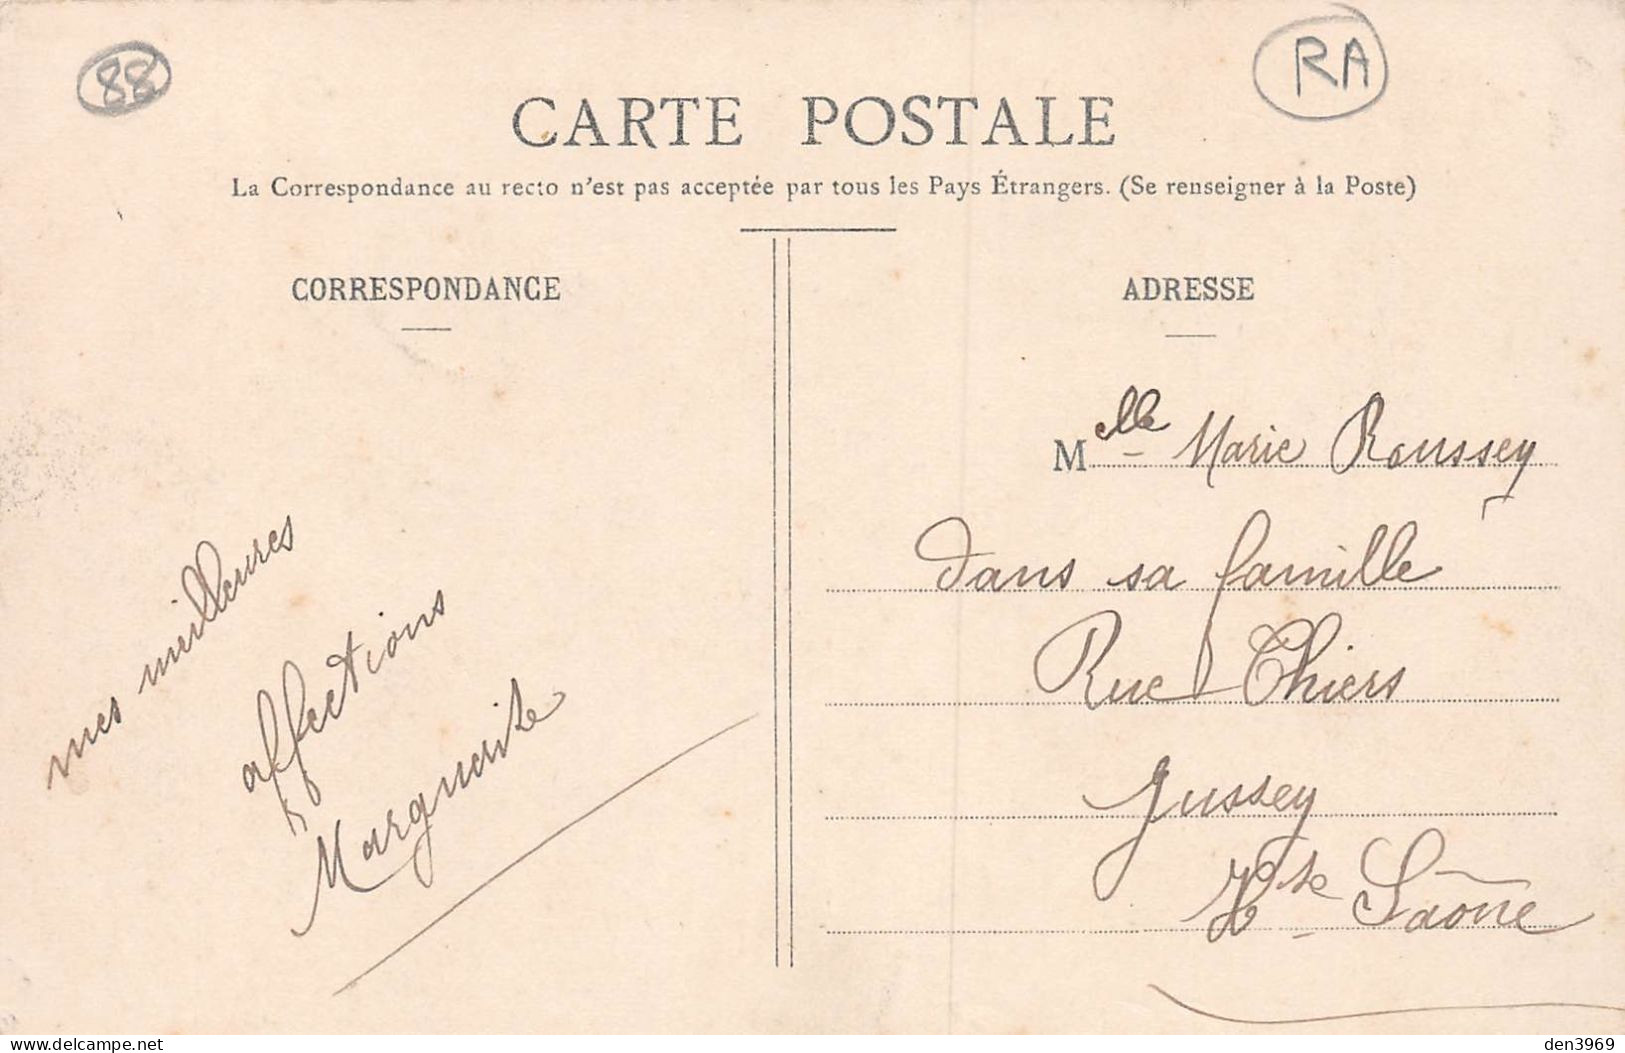 88
RA
CARTE POSTALE
La Correspondance au recto n'est pas acceptée par tous les Pays Étrangers. (Se renseigner à la Poste)
CORRESPONDANCE
mes meilleures
affections
Marguerite
ADRESSE
Mlle Marie Roussey
dans sa famille
Rue Thiers
Jussey
Hte Saône
den3969